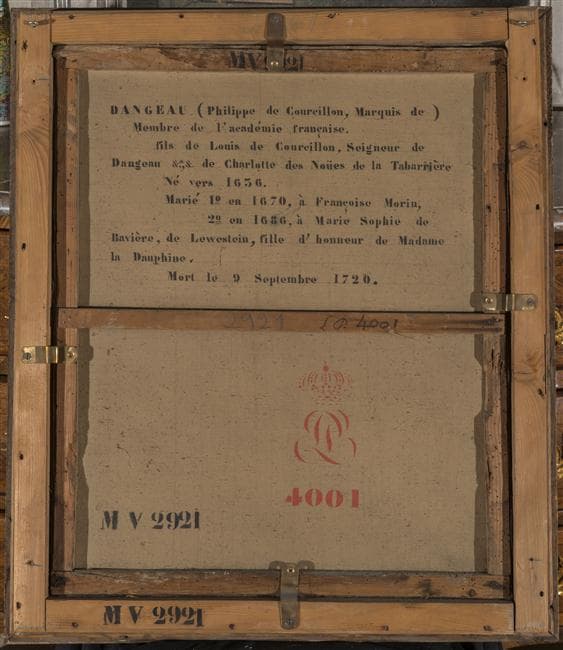 MV 2921
DANGEAU (Philippe de Courcillon, Marquis de)
Membre de l'académie française.
fils de Louis de Courcillon, Seigneur de
Dangeau &,&. de Charlotte des Noües de la Tabarrière
Né vers 1636.
Marié 1º en 1670, à Françoise Morin,
2º en 1686, à Marie Sophie de
Bavière, de Lewestein, fille d'honneur de Madame
la Dauphine.
Mort le 9 Septembre 1720.
2921 LP 4001
LP
4001
MV 2921
MV 2921